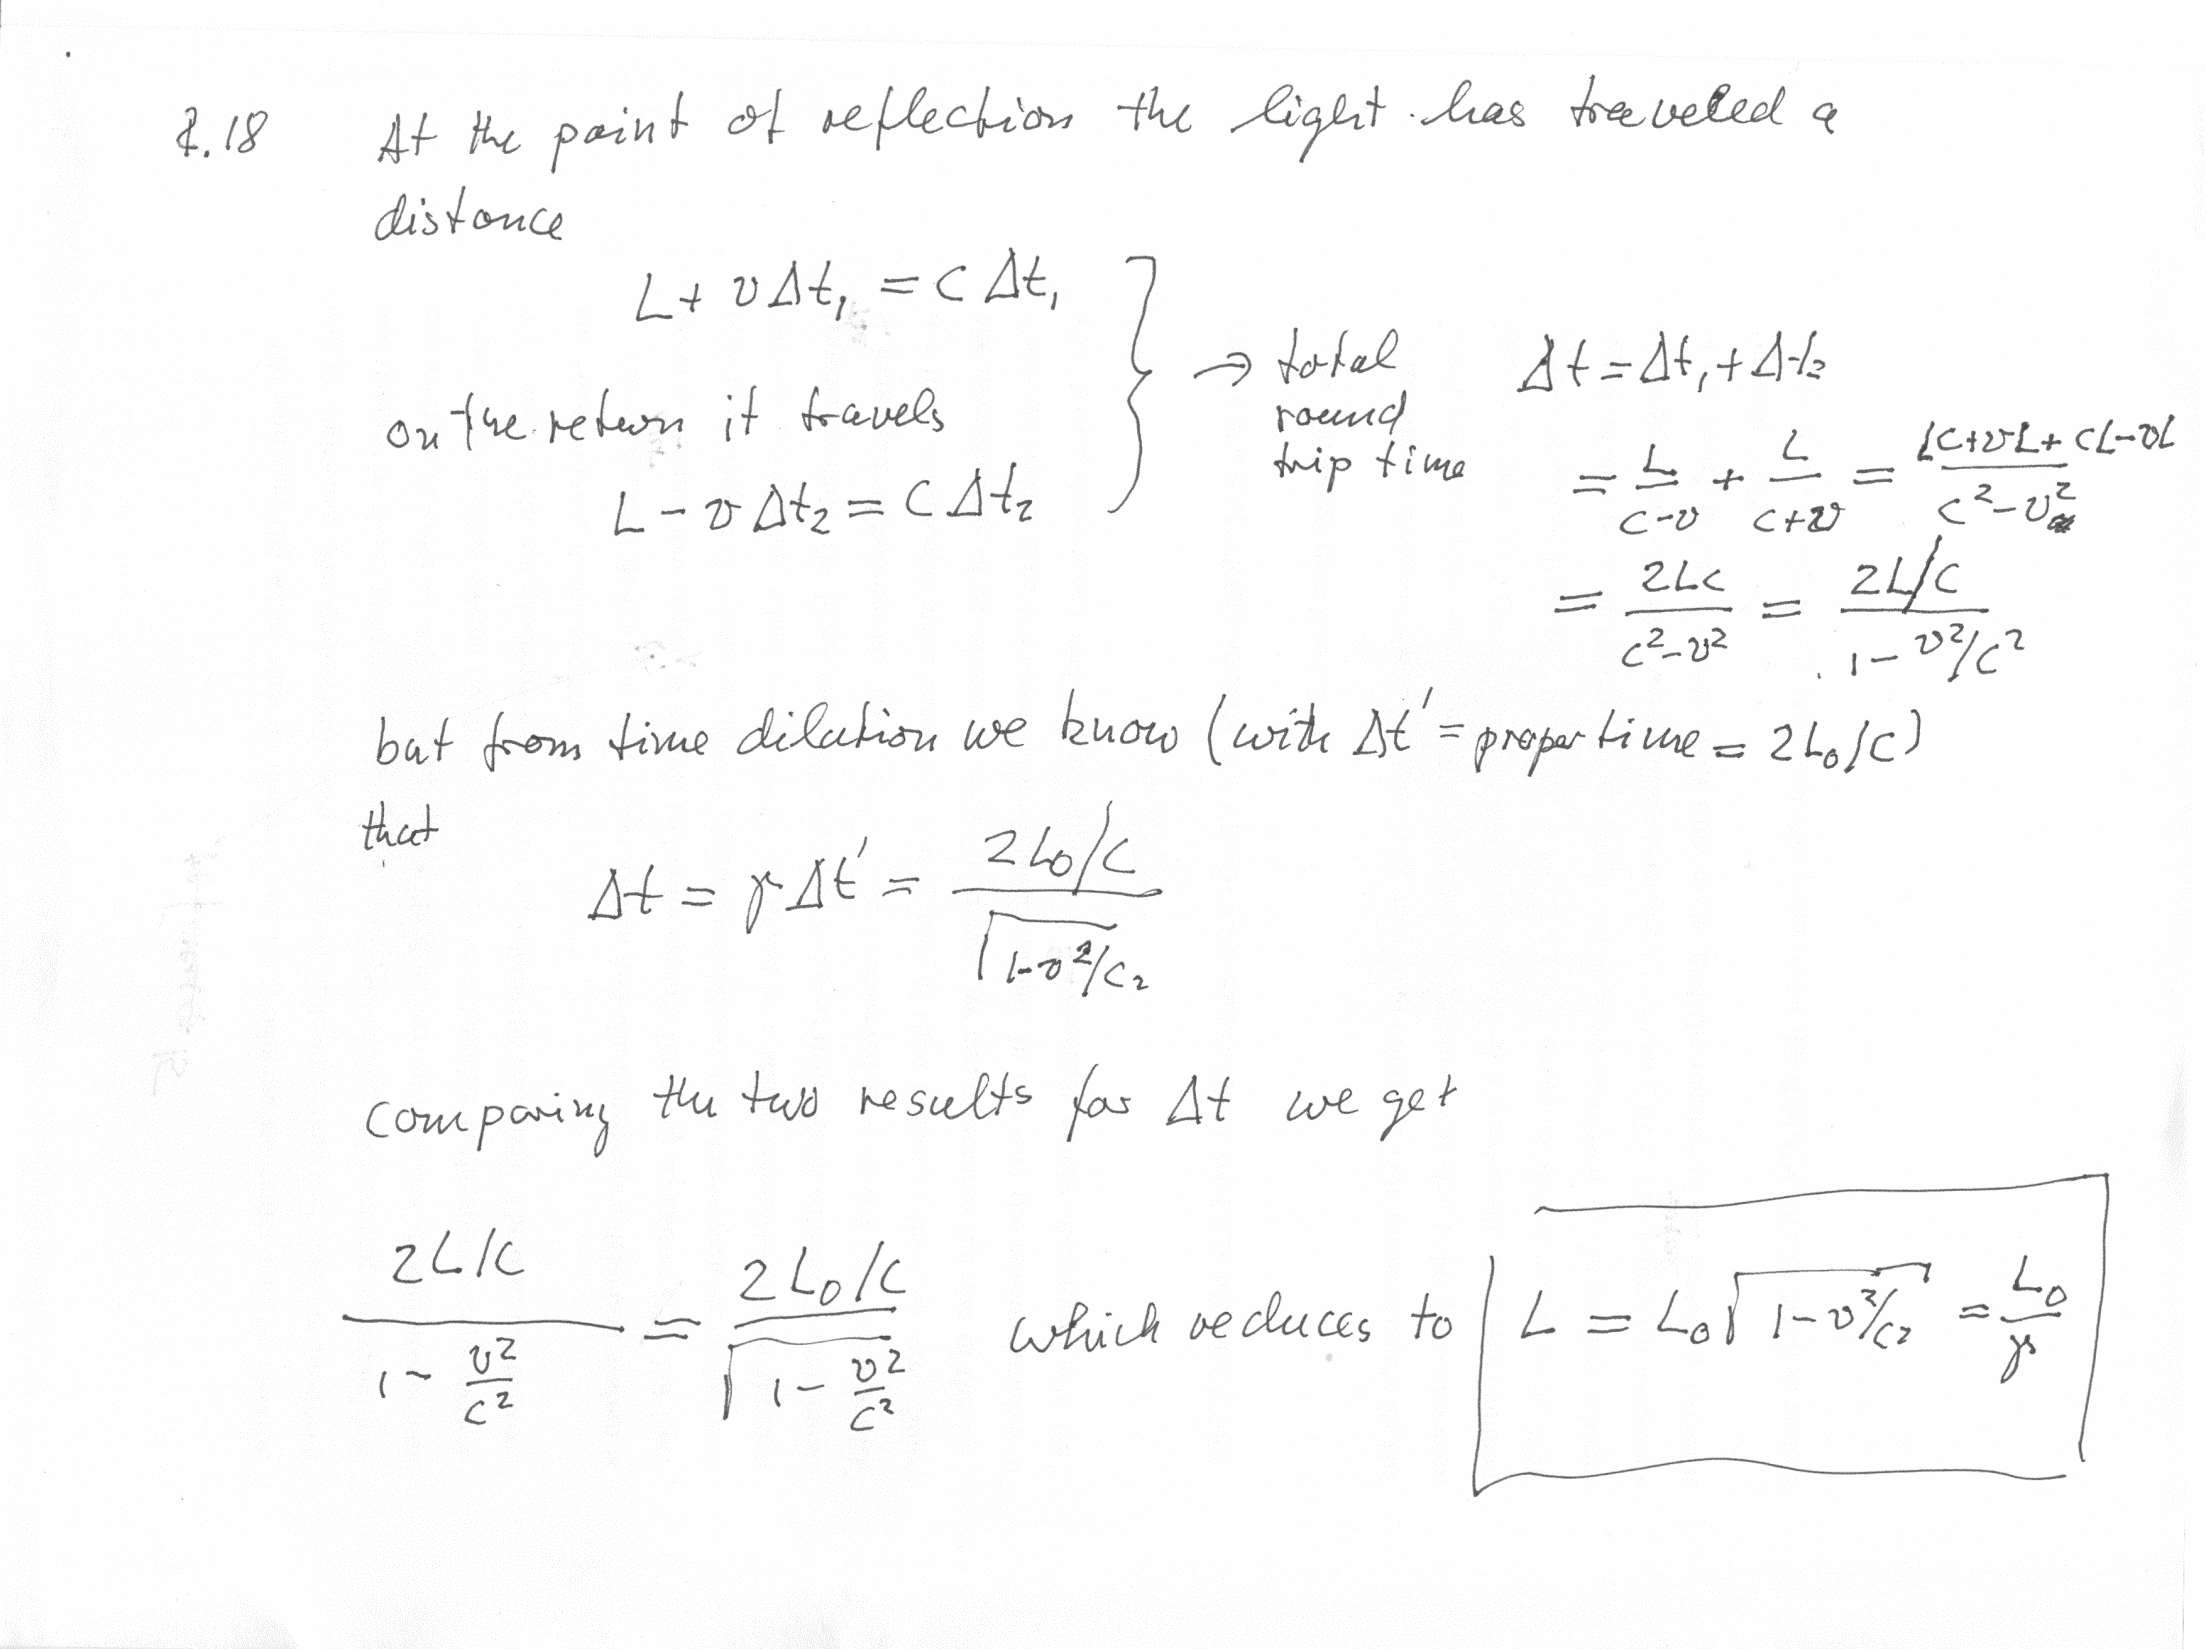 2.18 At the point of reflection the light has traveled a
distance
L + vΔt₁ = cΔt₁
on the return it travels
L - vΔt₂ = cΔt₂
→ total round trip time
Δt = Δt₁ + Δt₂
= L/(c-v) + L/(c+v) = (LC+vL+CL-vL)/(c²-v²)
= 2LC/(c²-v²) = (2L/C)/(1-v²/c²)
but from time dilation we know (with Δt' = proper time = 2L₀/C)
that
Δt = γΔt' = (2L₀/C)/√(1-v²/c₂)
comparing the two results for Δt we get
(2L/C)/(1-v²/c²) = (2L₀/C)/√(1-v²/c²) which reduces to L = L₀√(1-v²/c²) = L₀/γ